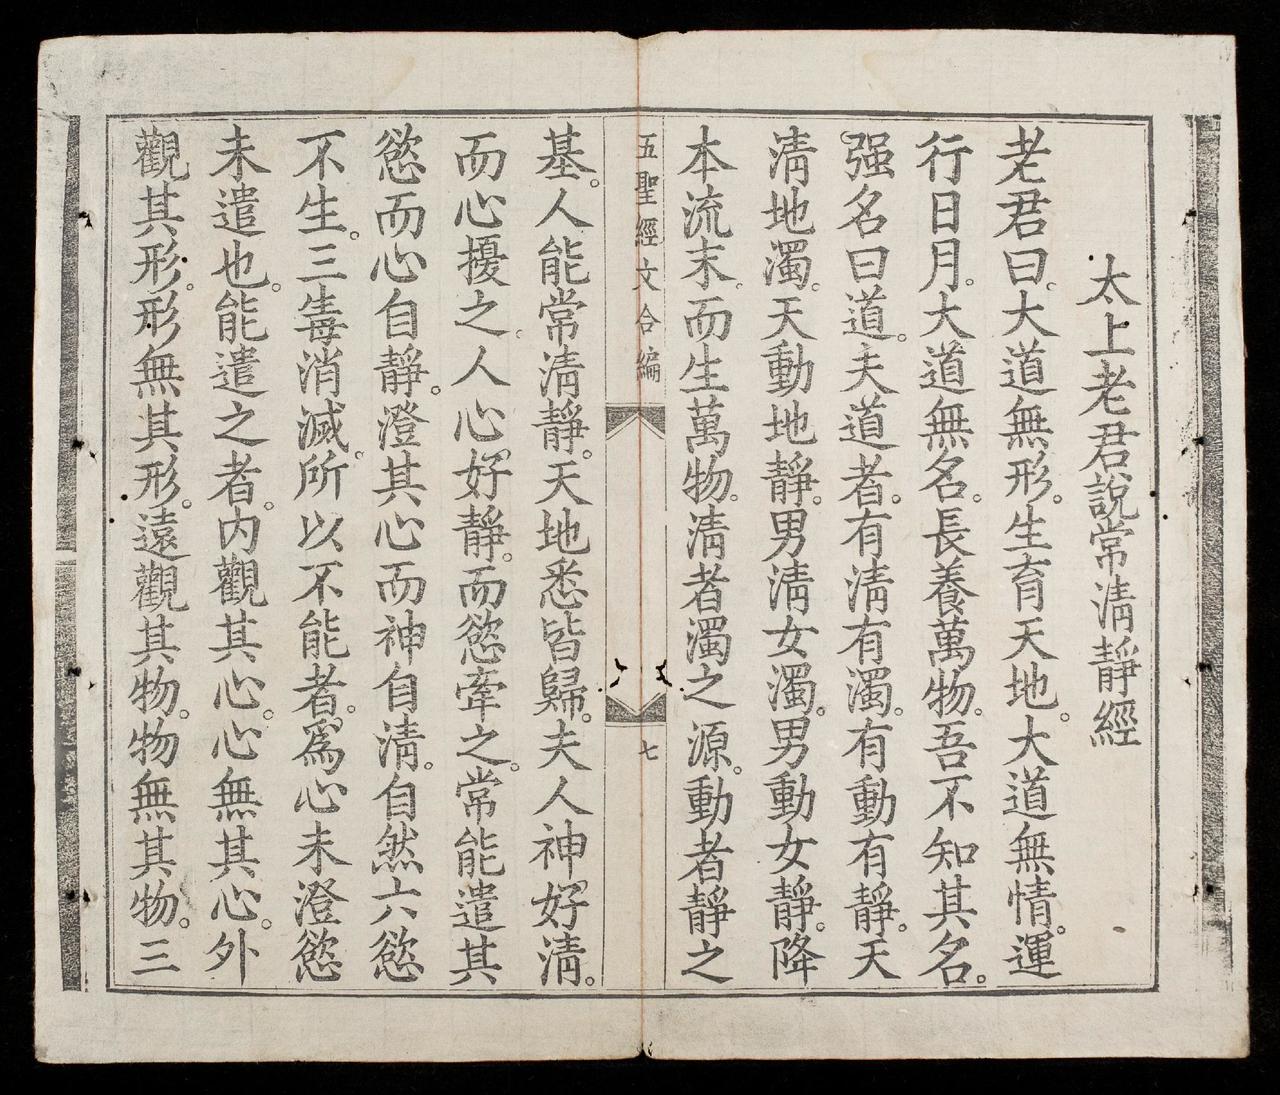 太上老君說常淸靜經
老君曰。大道無形。生育天地。大道無情。運
行日月。大道無名。長養萬物。吾不知其名。
强名曰道。夫道者。有淸有濁。有動有靜。天
淸地濁。天動地靜。男淸女濁。男動女靜。降
本流末。而生萬物。淸者濁之源。動者靜之
五聖經文合編
七
基。人能常淸靜。天地悉皆歸。夫人神好淸。
而心擾之。人心好靜。而慾牽之。常能遣其
慾而心自靜。澄其心而神自淸。自然六慾
不生。三毒消滅。所以不能者。爲心未澄慾
未遣也。能遣之者。內觀其心。心無其心。外
觀其形。形無其形。遠觀其物。物無其物。三